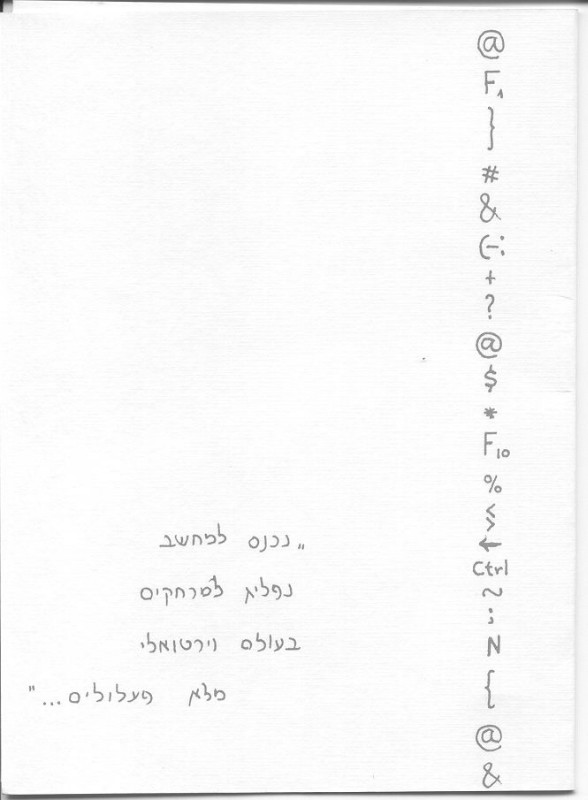 @
F1
}
#
&
(-:
+
?
@
$
*
F10
%
<
>
←
Ctrl
~
;
N
{
@
&
"נכנס למחשב
נפליג למרחקים
בעולם וירטואלי
מלא פעלולים..."